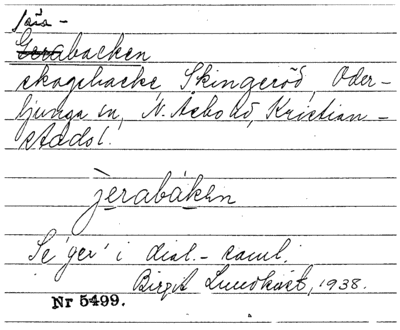 Gerabacken
skogsbacke, Skingeröd, Oder-
ljunga sn, N. Åsbo hd, Kristian-
stads l.
jerabákẹn
Se 'ger' i dial.-saml.
Birgit Lundkvist, 1938.
Nr 5499.